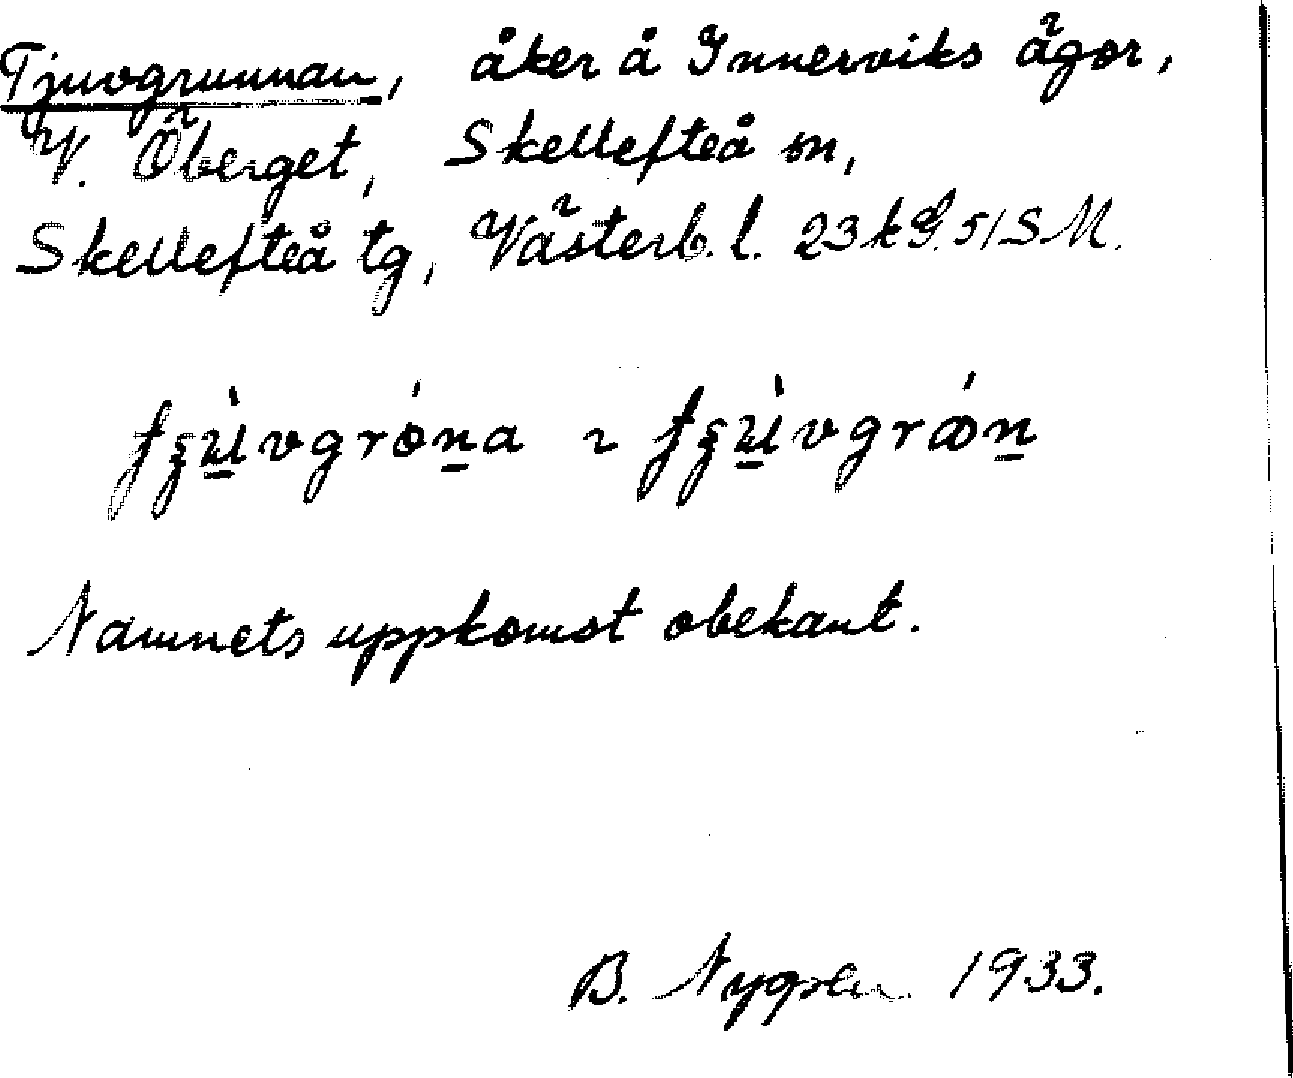 Tjuvgrunnan, åker å Innerviks ägor,
V. Öberget, Skellefteå sn,
Skellefteå tg, Västerb. l. 23 k S. 51 SM.
Namnets uppkomst obekant.
B. Nygren 1933.